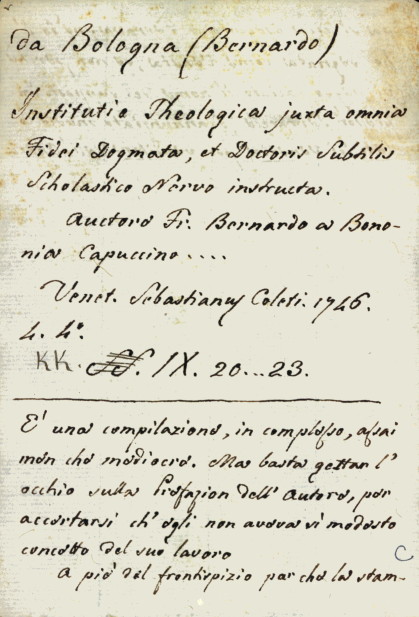 da Bologna (Bernardo)
Institutio Theologica juxta omnia
Fidei Dogmata, et Doctoris Subtilis
Scholastico Nervo instructa.
Auctore Fr. Bernardo a Bono-
nia Capuccino....
Venet. Sebastianus Coleti. 1746.
4. 4°.
KK. IX. 20...23.
E' una compilazione, in complesso, assai
men che mediocre. Ma basta gettar l'
occhio sulla Prefazion dell'Autore, per
accertarsi ch'egli non aveva sì modesto
concetto del suo lavoro
A piè del frontispizio par che la stam-
C